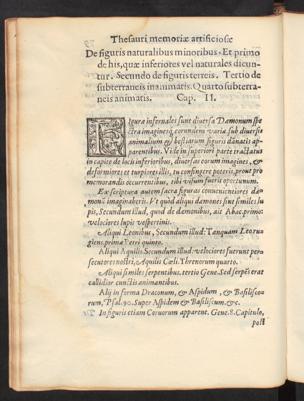 Thesauri memoriæ artificiosæ
De figuris naturalibus minoribus. Et primo
de his, quæ inferiores vel naturales dicun
tur. Secundo de figuris terreis. Tertio de
subterraneis inanimatis. Quarto subterra
neis animatis. Cap. II.
Figuræ infernales sunt diversa Dæmonum spe
ctra imaginesq. eorundem varia sub diversis
animalium & bestiarum figuris dānatis ap
parentibus. Vide in superiori parte tractatus
in capite de locis inferioribus, diversas eorum imagines, &
deformiores et turpiores illis, tu confingere poteris, prout pro
memorandis occurrentibus, tibi visum fuerit opportunum.
Ex scriptura autem sacra figuras convenientiores dæ
monū imaginaberis. Vt quòd aliqui dæmones sint similes lu
pis, Secundum illud, quod de dæmonibus, ait Abac. primo:
velociores lupis vespertinis.
Aliqui Leonibus, Secundum illud: Tanquam Leo ru
giens, prima Petri quinto.
Aliqui Aquilis Secundum illud: velociores fuerunt perse
cutores nostri, Aquilis Cœli. Threnorum quarto.
Aliqui similes serpentibus. tertio Gene. Sed serpēs erat
callidior cunctis animantibus.
Alij in forma Draconum, & Aspidum, & Basilisco
rum, Psal. 90. Super Aspidem & Basiliscum, &c.
In figuris etiam Corvorum apparent. Gene. 8. Capitulo,
post